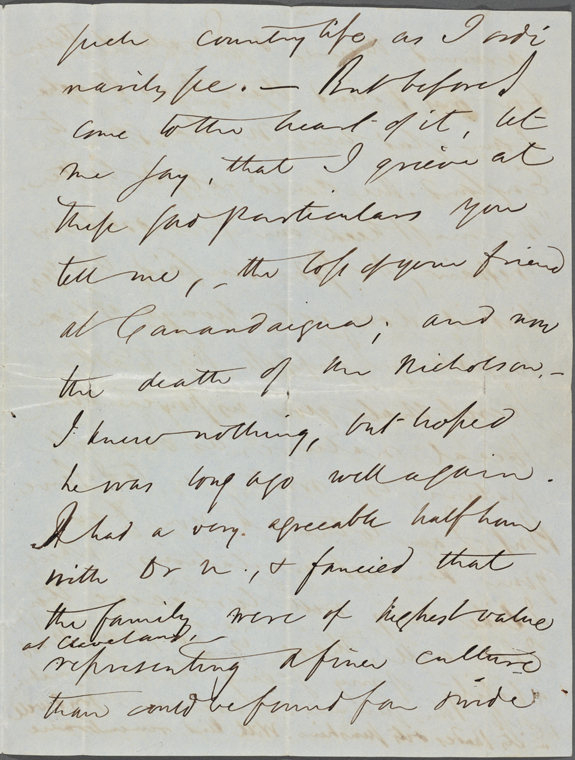 such country life, as I ordi
narily see. — But before I
come to the heart of it, let
me say, that I grieve at
these sad particulars you
tell me, – the loss of your friend
at Canandaigua; and now
the death of Mr Nicholson. –
I knew nothing, but hoped
he was long ago well again.
I had a very agreeable half hour
with Dr N., & fancied that
the family were of highest value
at Cleveland, –
representing a finer culture
than could be found far &amp; wide